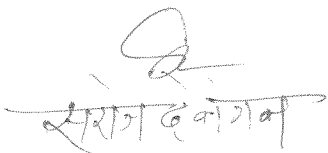 सरोज देवांगन